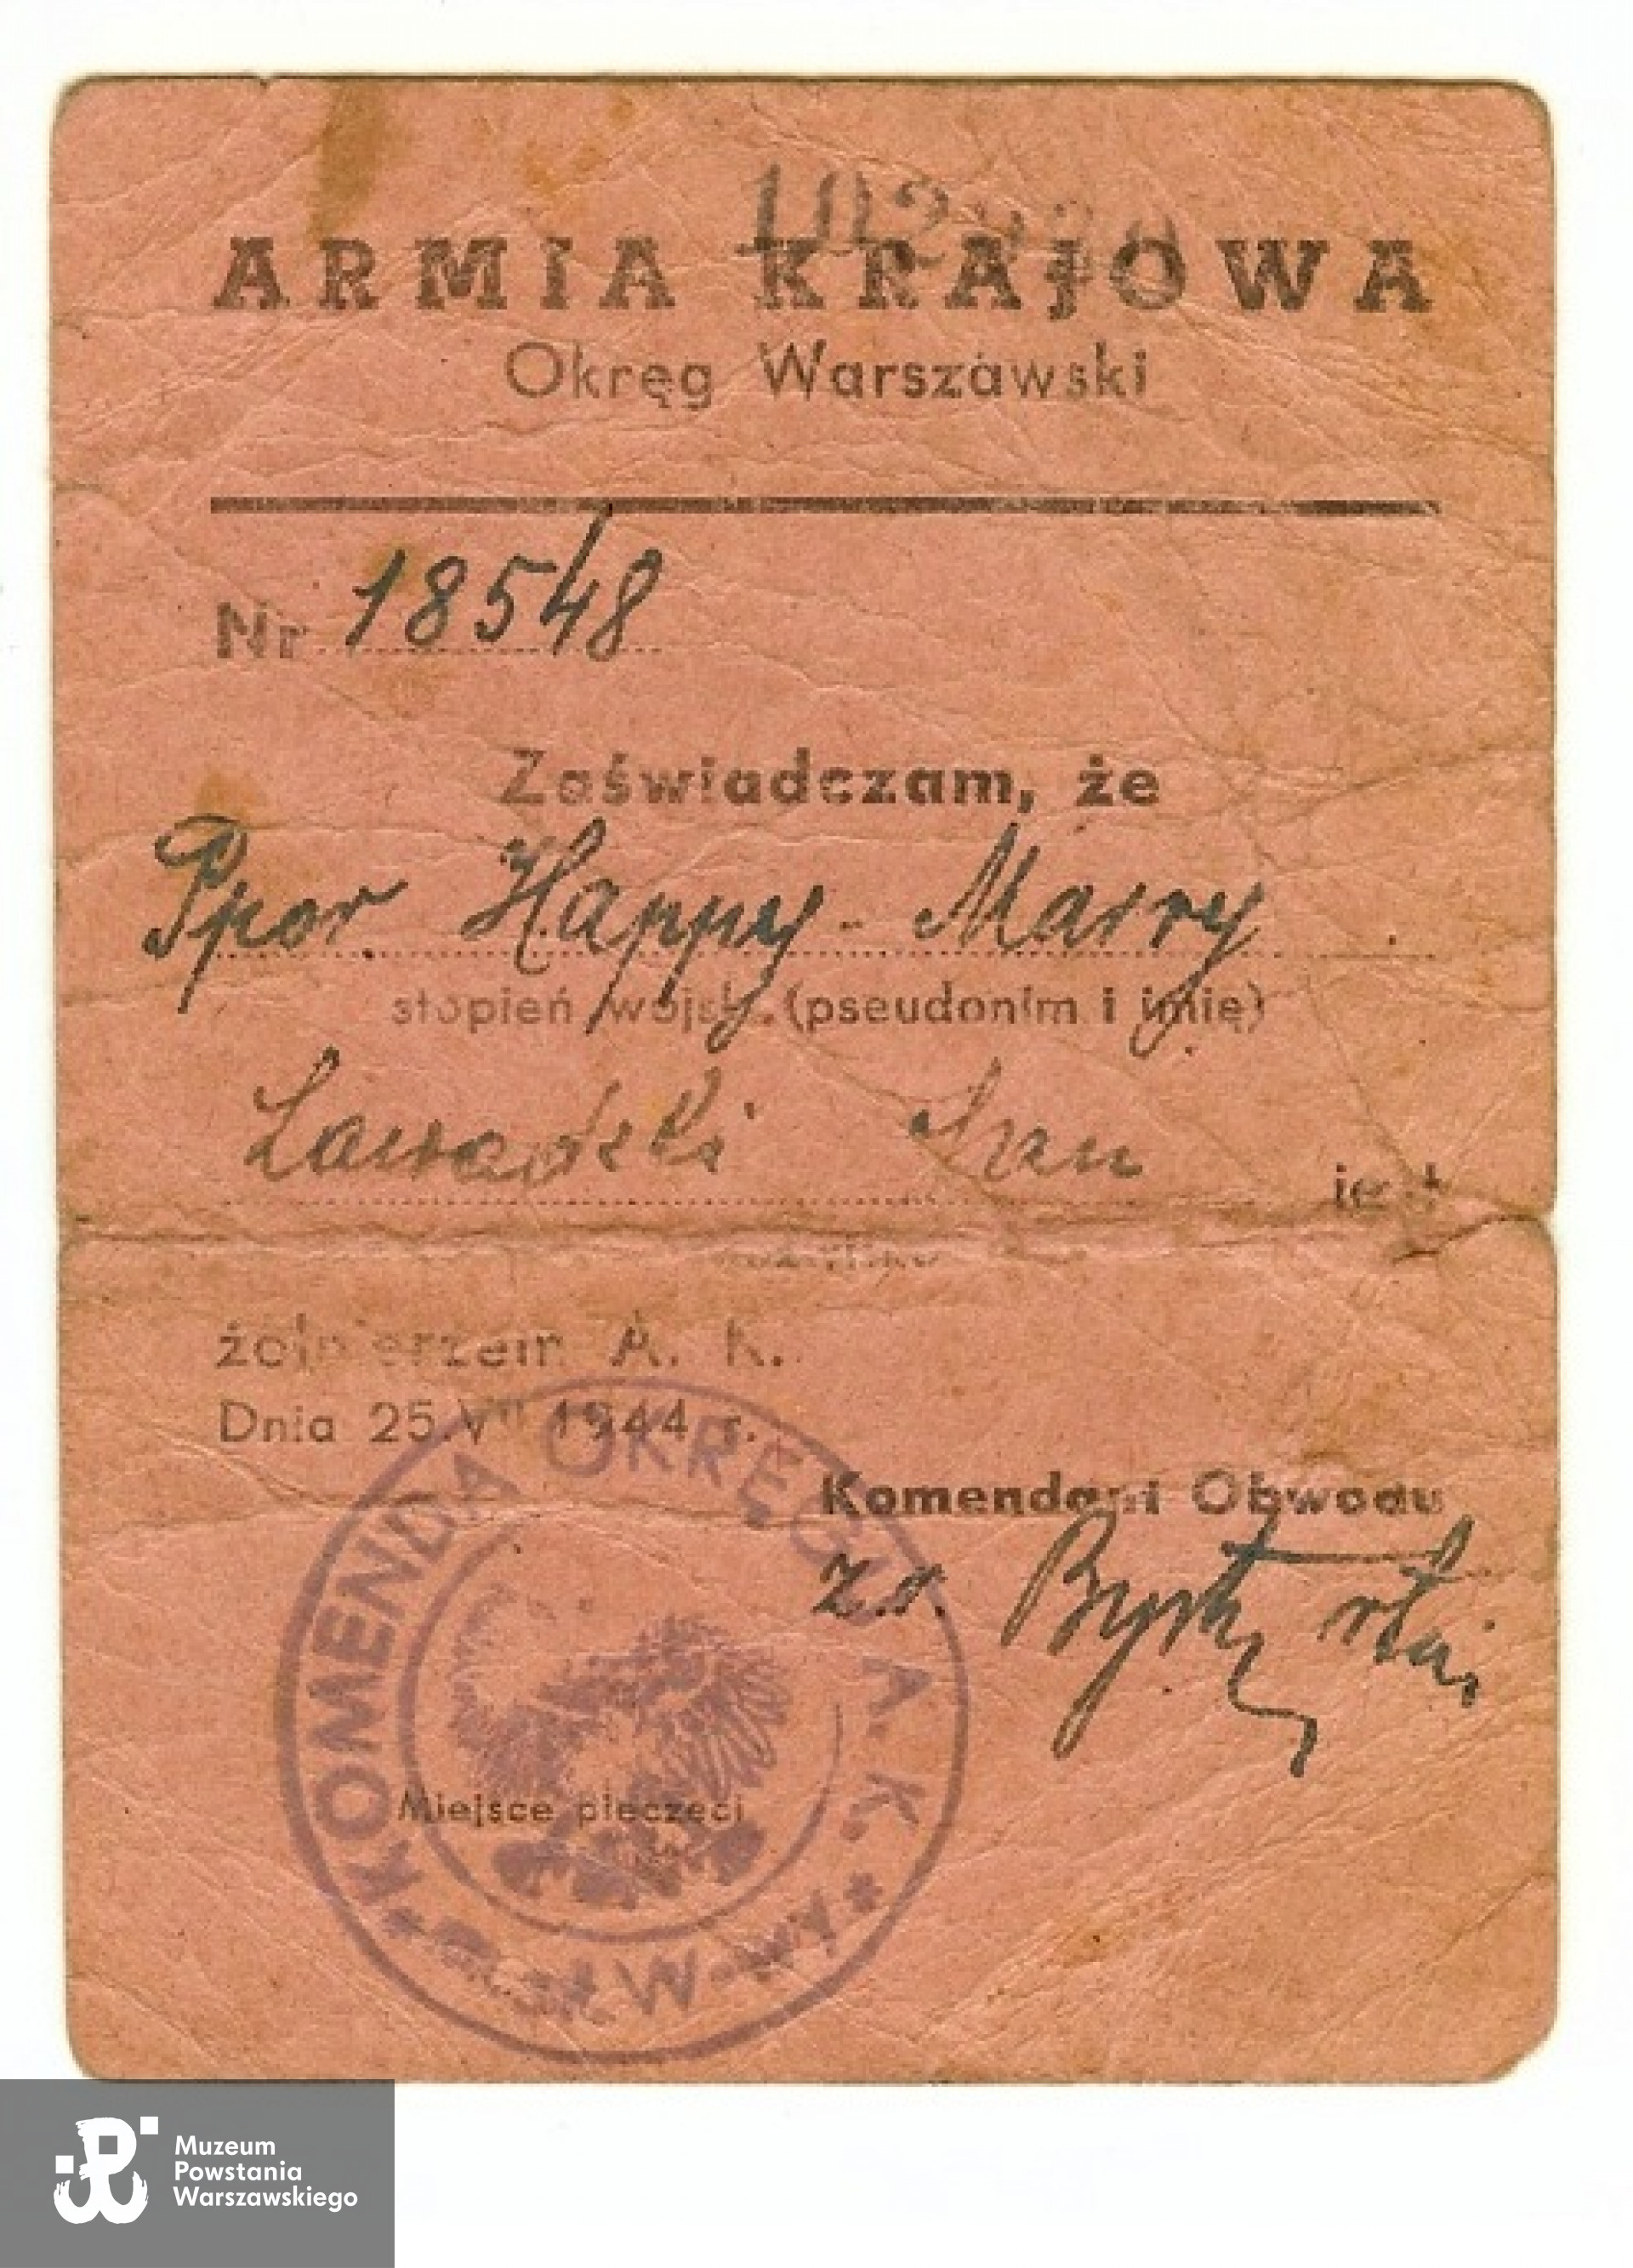 ARMIA KRAJOWA
Okręg Warszawski
Nr 18548
Zaświadczam, że
Ppor Happy - Marry
stopień wojsk. (pseudonim i imię)
jest
żołnierzem A. K.
Dnia 25.VII 1944 r.
KOMENDA OKRĘGU A.K.
Komendant Obwodu
z.r.
Miejsce pieczęci
Muzeum
Powstania
Warszawskiego